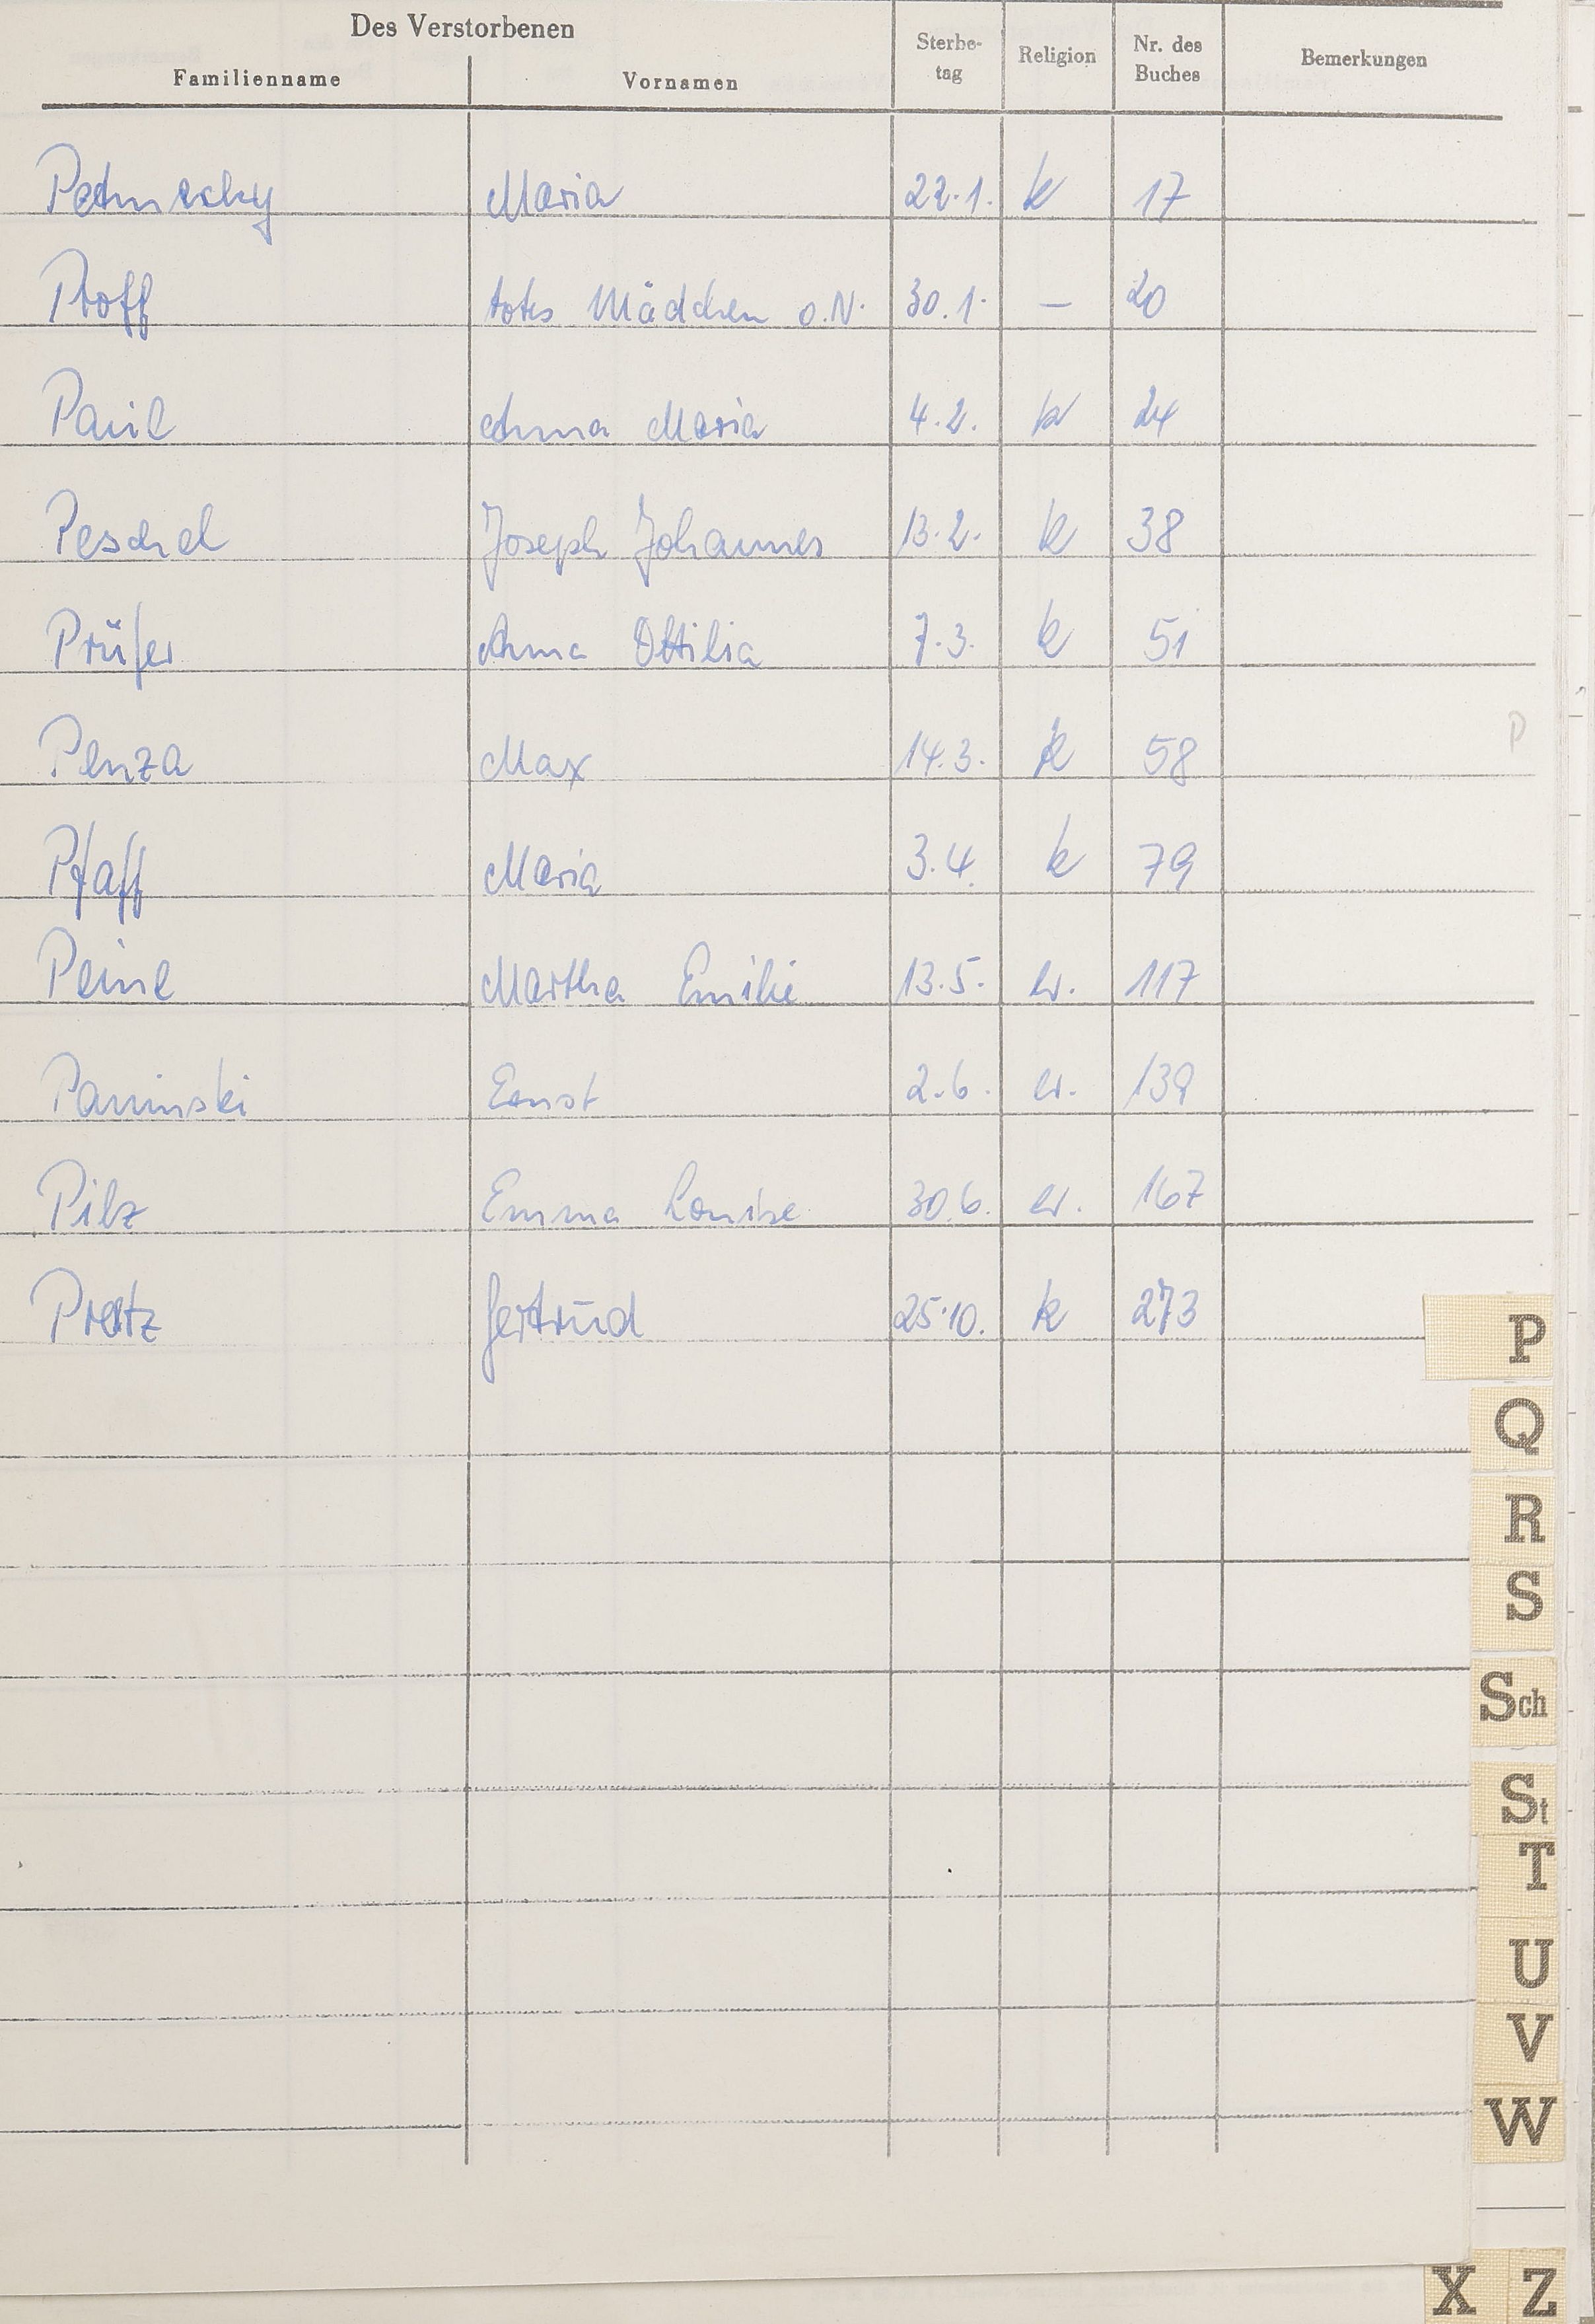 Des Verstorbenen
Familienname Vornamen Sterbe-tag Religion Nr. des Buches Bemerkungen
Maria 22.1. k 17
Proff totes Mädchen o.N. 30.1. – 20
Anna Maria 4.2. k 24
Peschel Joseph Johannes 13.2. k 38
Prüfer Anna Ottilia 7.3. k 51
Penza Max 14.3. k 58
P
Pfaff Maria 3.4. k 79
Peine Martha Emilie 13.5. ev. 117
Paninski Ernst 2.6. ev. 139
Pilz Emma Louise 30.6. ev. 167
Gertrud 25.10. k 273
P
Q
R
S
Sch
St
T
U
V
W
X Z